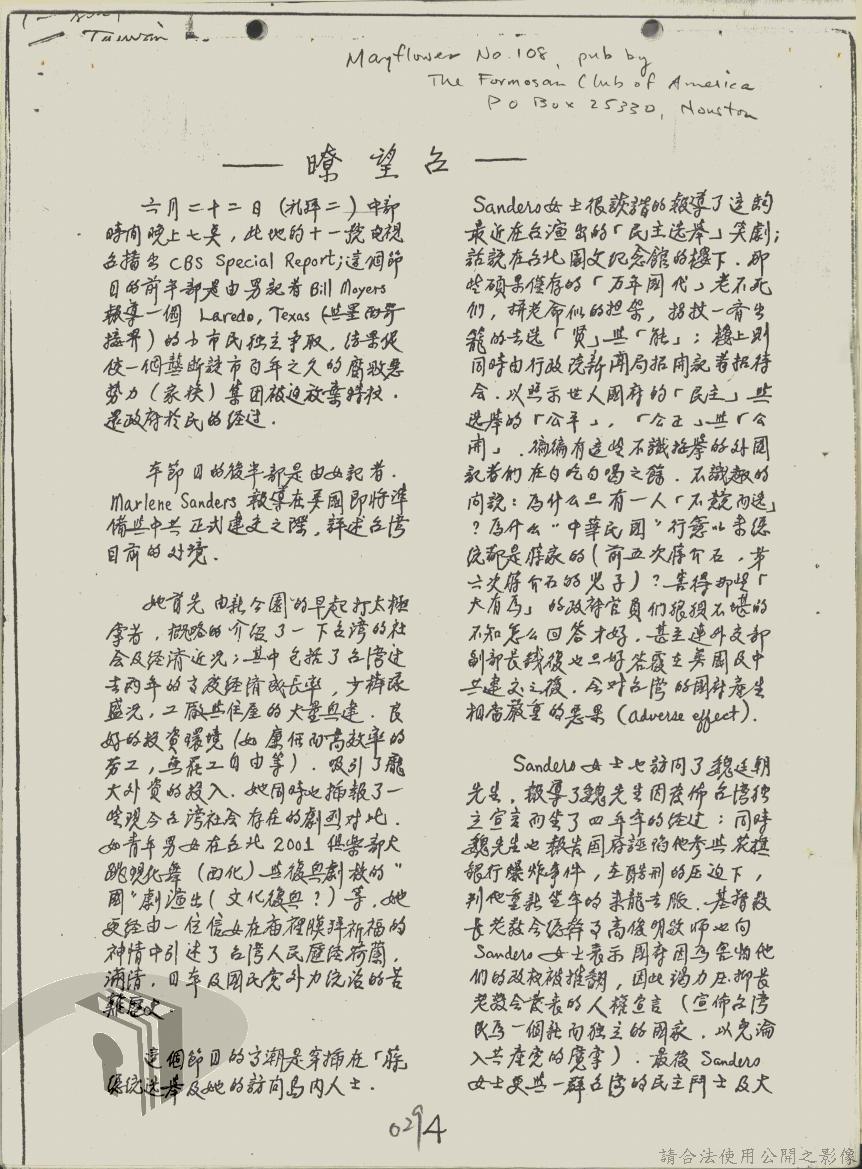 Taiwan
Mayflower No.108, pub by
The Formosan Club of America
PO Box 25330, Houston
— 瞭望台 —
六月二十二日（礼拜二）中部
時間晚上七点，此地的十一號电視
台播出 CBS Special Report；這個節
目的前半部是由男記者 Bill Moyers
報導一個 Laredo, Texas（与墨西哥
接界）的小市民独立争取，结果促
使一個壟断該市百年之久的腐敗悪
势力（家族）集团被迫放棄特权，
還政府於民的经过．
本節目的後半部是由女記者．
Marlene Sanders 報導在美國即將準
備与中共正式建交之際，詳述台湾
目前的处境．
她首先由新公園的早起打太極
拳者，概略的介绍了一下台湾的社
会及经濟近况；其中包括了台湾过
去两年的高度经濟成長率，少棒隊
盛况，工廠与住屋的大量興建．良
好的投資環境（如廉價而高效率的
劳工，無罷工自由等）．吸引了龐
大外資的投入．她同時也播報了一
些現今台湾社会存在的劇烈对比．
如青年男女在台北 2001 俱楽部大
跳現代舞（西化）与復興劇校的“
國”劇演出（文化復興？）等．她
更经由一位信女在庙裡膜拜祈福的
神情中引述了台湾人民歷经荷蘭，
満清，日本及國民党外力统治的苦
難歴史．
這個節目的高潮是穿插在「蒋
總統选举及她的訪问島内人士．
Sanders女士很诙諧的報導了這齣
最近在台演出的「民主选举」笑劇；
話說在台北國父纪念館的樓下．那
些碩果僅存的「万年國代」老不死
们，拼老命似的担架，拐杖一齊出
籠的去选「贤」与「能」；樓上則
同時由行政院新聞局招開記者招待
会．以照示世人國府的「民主」与
选举的「公平」，「公正」与「公
開」．偏偏有這些不識抬举的外國
記者们在白吃白喝之餘．不識趣的
问說：為什么只有一人「不競而选」
？為什么“中華民國”行憲以来總
统都是蒋家的（前五次蒋介石，第
六次蒋介石的児子）？害得那些「
大有為」的政府官員们狼狽不堪的
不知怎么回答才好．甚至連外交部
副部長錢復也只好答覆在美國及中
共建交之後．会对台湾的國府產生
相當嚴重的悪果 (adverse effect)．
Sanders 女士也訪问了魏廷朝
先生．報導了魏先生因發佈台湾独
立宣言而坐了四年牢的经过；同時
魏先生也報告國府誣陷他参与花旗
銀行爆炸事件，在酷刑的压迫下，
判他重新坐牢的来龍去脈．基督教
長老教会總幹事高俊明牧師也向
Sanders 女士表示國府因為害怕他
们的政权被推翻，因此竭力压抑長
老教会發表的人權宣言（宣佈台湾
成為一個新而独立的國家．以免淪
入共產党的魔掌）．最後 Sanders
女士更与一群台湾的民主鬥士及大
0294
請合法使用公開之影像